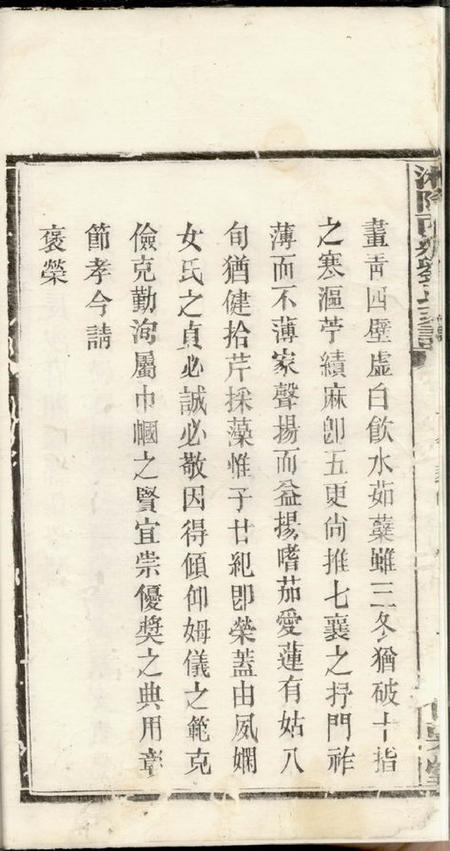 畫靑四壁虛白飮水茹蘗雖三冬猶破十指
之寒漚苧績麻卽五更尙推七襄之抒門祚
薄而不薄家聲揚而益揚嗜茄愛蓮有姑八
旬猶健拾芹採藻惟子廿紀即榮蓋由夙嫻
女氏之貞必誠必敬因得傾仰姆儀之範克
儉克勤洵屬巾幗之賢宜崇優奬之典用章
節孝今請
褒榮